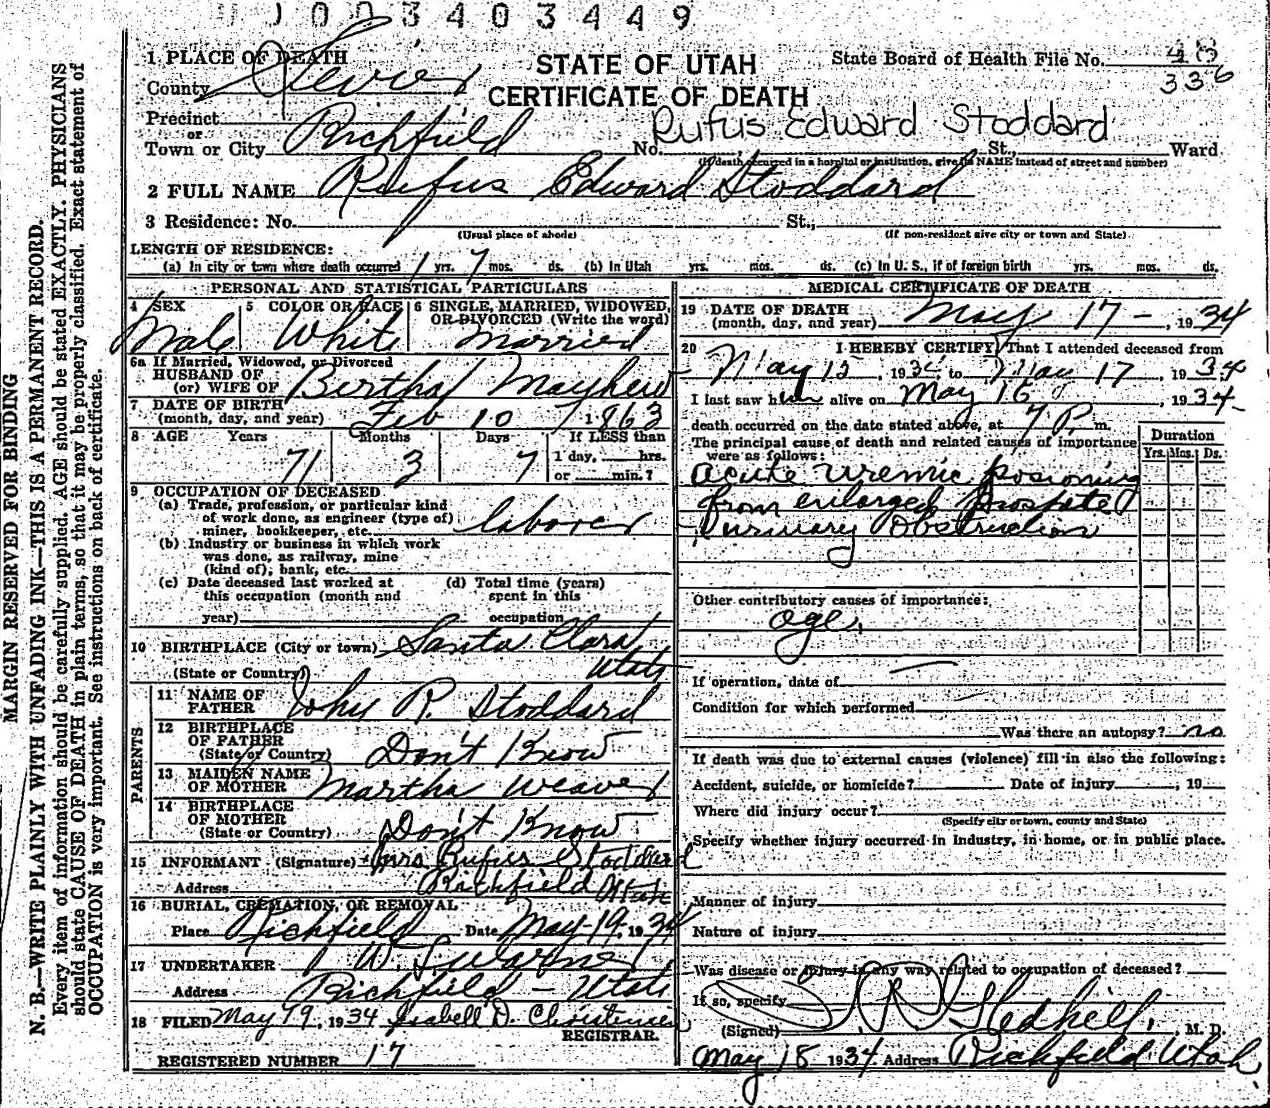 0003403449
STATE OF UTAH
CERTIFICATE OF DEATH
State Board of Health File No. 43
336
1 PLACE OF DEATH
County Sevier
Precinct
or
Town or City Richfield No. St., Ward
Rufus Edward Stoddard
(If death occurred in a hospital or institution, give its NAME instead of street and number)
2 FULL NAME Rufus Edward Stoddard
3 Residence: No. St.,
(Usual place of abode) (If non-resident give city or town and State)
LENGTH OF RESIDENCE:
(a) In city or town where death occurred 1 yrs. 7 mos. ds. (b) In Utah yrs. mos. ds. (c) In U. S., if of foreign birth yrs. mos. ds.
PERSONAL AND STATISTICAL PARTICULARS
4 SEX Male
5 COLOR OR RACE White
6 SINGLE, MARRIED, WIDOWED, OR DIVORCED (Write the word) Married
6a If Married, Widowed, or Divorced
HUSBAND OF
(or) WIFE OF Bertha Mayhew
7 DATE OF BIRTH
(month, day, and year) Feb 10 1863
8 AGE Years Months Days If LESS than
71 3 7 1 day, hrs.
or min.?
9 OCCUPATION OF DECEASED
(a) Trade, profession, or particular kind
of work done, as engineer (type of)
miner, bookkeeper, etc. laborer
(b) Industry or business in which work
was done, as railway, mine
(kind of), bank, etc.
(c) Date deceased last worked at
this occupation (month and
year)
(d) Total time (years)
spent in this
occupation
10 BIRTHPLACE (City or town) Santa Clara
(State or Country) Utah
PARENTS
11 NAME OF
FATHER John R. Stoddard
12 BIRTHPLACE
OF FATHER
(State or Country) Don't Know
13 MAIDEN NAME
OF MOTHER Martha Weaver
14 BIRTHPLACE
OF MOTHER
(State or Country) Don't Know
15 INFORMANT (Signature) Mrs Rufus Stoddard
Address Richfield Utah
16 BURIAL, CREMATION, OR REMOVAL
Place Richfield Date May-19, 1934
17 UNDERTAKER
Address Richfield - Utah
18 FILED May 19, 1934 Isabell D. Christensen
REGISTRAR.
REGISTERED NUMBER 17
MEDICAL CERTIFICATE OF DEATH
19 DATE OF DEATH
(month, day, and year) May 17 -, 1934
20 I HEREBY CERTIFY, That I attended deceased from
May 12, 1934 to May 17, 1934
I last saw him alive on May 16, 1934
death occurred on the date stated above, at 7 P. m.
The principal cause of death and related causes of importance
were as follows:
Duration
Yrs. Mos. Ds.
Acute uremic posioning
from enlarged Prostate
Urinary Obstruction
Other contributory causes of importance:
age.
If operation, date of
Condition for which performed
Was there an autopsy? no
If death was due to external causes (violence) fill in also the following:
Accident, suicide, or homicide? Date of injury , 19
Where did injury occur?
(Specify city or town, county and State)
Specify whether injury occurred in industry, in home, or in public place.
Manner of injury
Nature of injury
Was disease or injury in any way related to occupation of deceased?
If so, specify
(Signed) Gledhill, M. D.
May 18 1934 Address Richfield Utah.
MARGIN RESERVED FOR BINDING
N. B.—WRITE PLAINLY WITH UNFADING INK—THIS IS A PERMANENT RECORD.
Every item of information should be carefully supplied. AGE should be stated EXACTLY. PHYSICIANS
should state CAUSE OF DEATH in plain terms, so that it may be properly classified. Exact statement of
OCCUPATION is very important. See instructions on back of certificate.